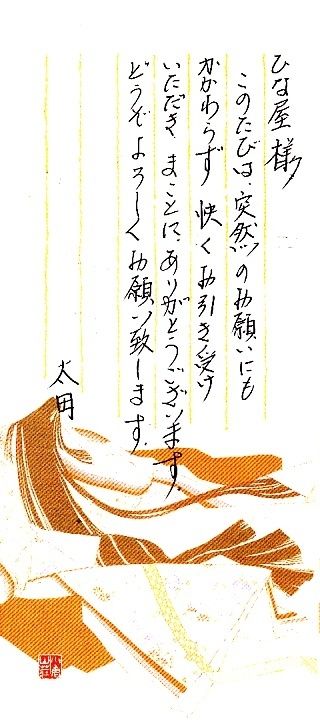 ひな屋様
このたびは、突然のお願いにも
かかわらず 快くお引き受け
いただき まことに、ありがとうございます。
どうぞ よろしくお願い致します。
太田